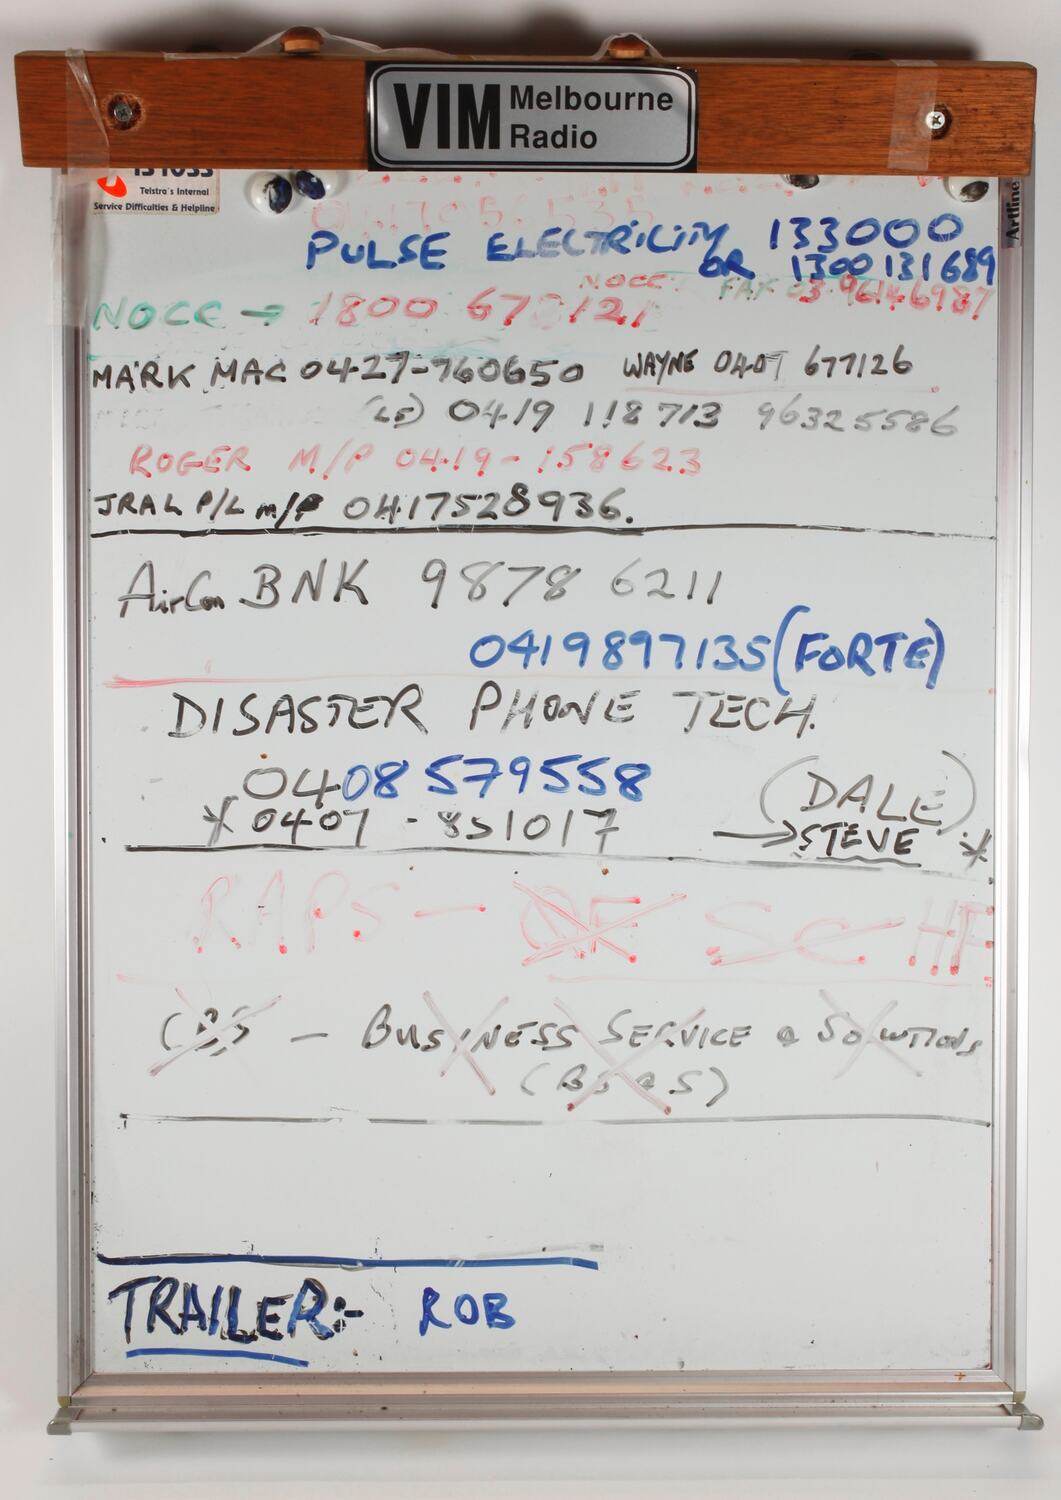 VIM Melbourne
Radio
131053
Telstra's Internal
Service Difficulties & Helpline
Artline
PULSE ELECTRICITY 133000
OR 1300 131 689
NOCC FAX 03 9614 6987
NOCC → 1800 67 121
MARK MAC 04-27-760650 WAYNE 0407 677126
(LE) 0419 118 713 96325586
ROGER M/P 0419-158623
JRAL P/L m/P 0417528936.
AirCon BNK 9878 6211
0419897135 (FORTE)
DISASTER PHONE TECH.
0408 579558 (DALE)
* 0407 - 851017 → STEVE *
RAPS — HF
CBS — BUSINESS SERVICE & SOLUTIONS
(BS&S)
TRAILER:- ROB